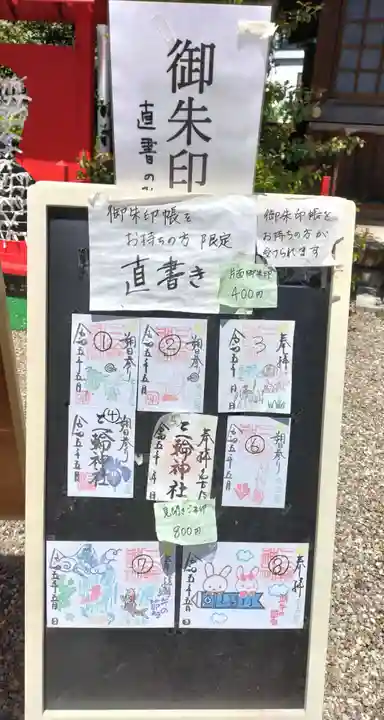 御朱印
直書の
御朱印帳を
お持ちの方限定
直書き
御朱印帳を
お持ちの方が
受けられます
片面御朱印
400円
①
朔参り
令和五年五月
②
朔参り
令和五年五月
3
奉拝
令和五年五月 日
④
朔参り
令和五年五月
奉拝
三輪神社
令和五年 月 日
⑥
朔参り
令和五年五月
見開き御朱印
800円
⑦
令和五年五月
⑧
奉拝
令和五年五月 日